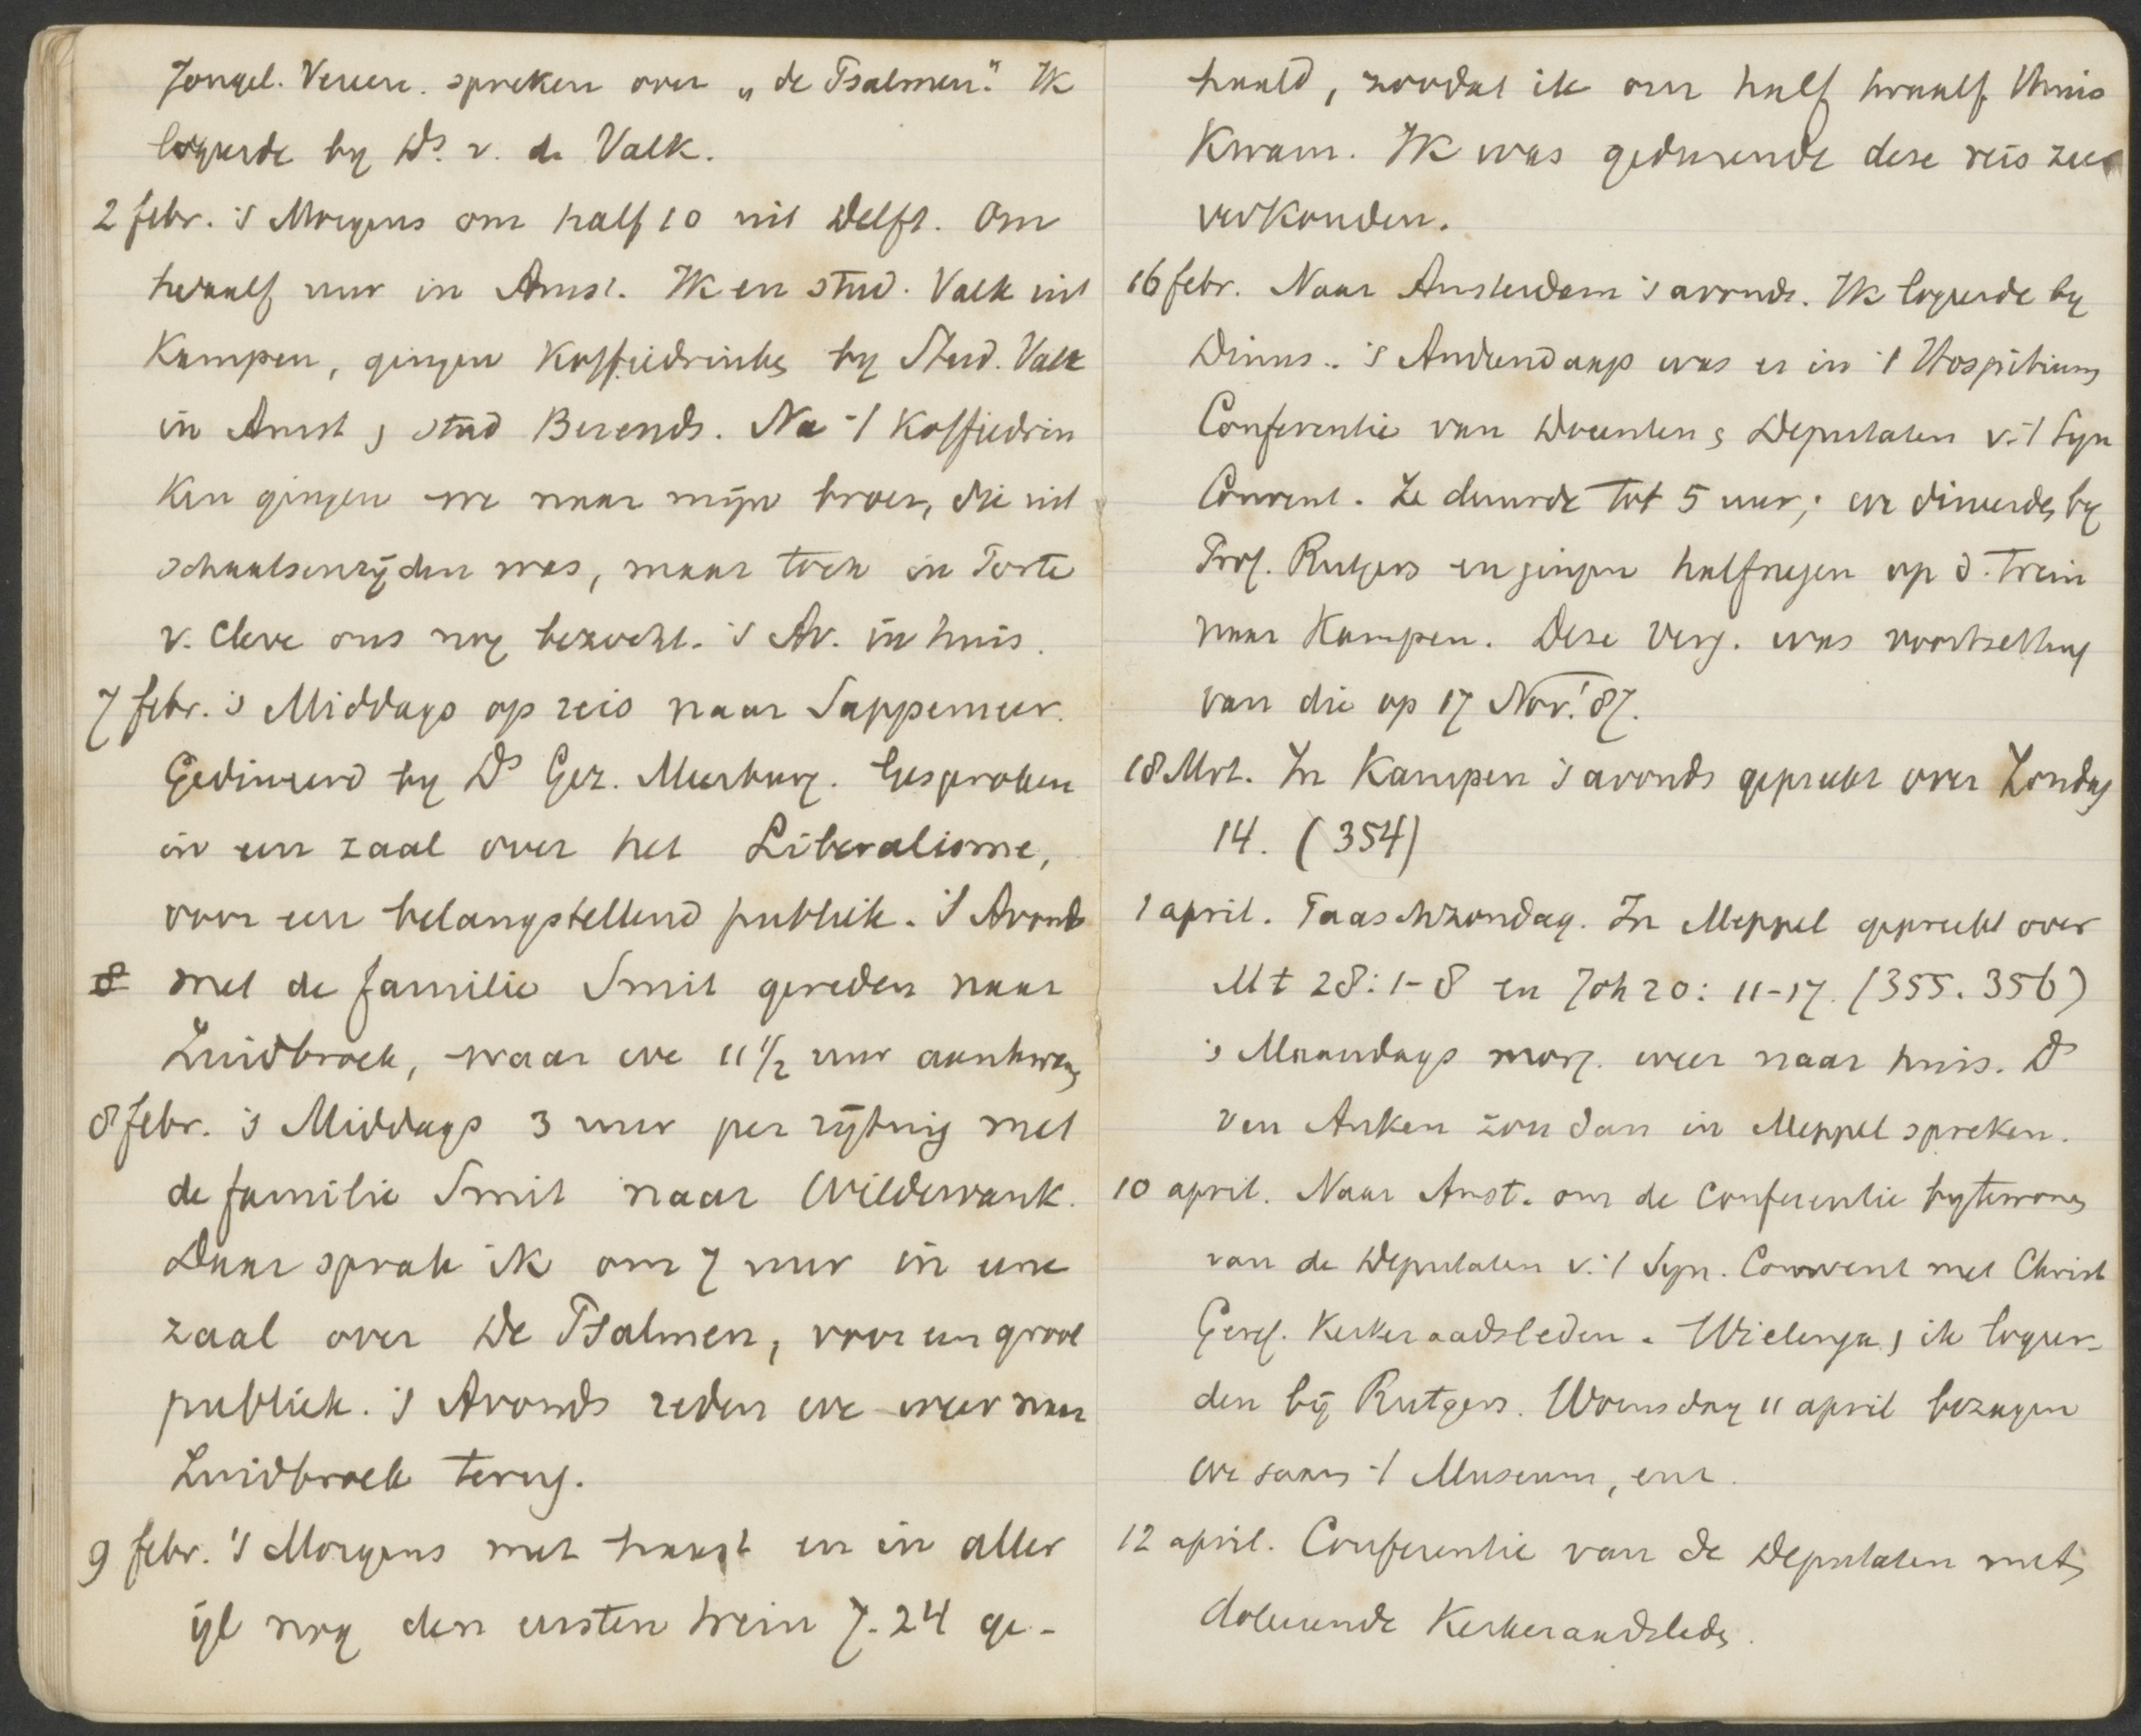 Jongel. Vereen. spreken over „de Psalmen." Ik
logeerde by Ds. v. d. Valk.
2 febr. 's Morgens om half 10 uit Delft. Om
twaalf uur in Amst. Ik en stud. Valk uit
Kampen, gingen koffiedrinken by Stud. Valk
in Amst, stud Berends. Na 't koffiedrin
ken gingen we naar mijn broer, die uit
schaatsenrijden was, maar toch in Porte
v. Cleve ons nog bezocht. 's Av. in huis.
7 febr. 's Middags op reis naar Sappemeer.
Gedineerd by Ds Gez. Meerburg. Gesproken
in een zaal over het Liberalisme,
voor een belangstellend publiek. 's Avonds
8 met de familie Smit gereden naar
Zuidbroek, waar we 11 1/2 uur aankwamen
8 febr. 's Middags 3 uur per rijtuig met
de familie Smit naar Wildervank.
Daar sprak ik om 7 uur in eene
zaal over De Psalmen, voor een groot
publiek. 's Avonds reden we weer naar
Zuidbroek terug.
9 febr. 's Morgens met haast en in aller
ijl nog den eersten trein 7.24 ge-
haald, zoodat ik om half twaalf thuis
kwam. Ik was gedurende deze reis zeer
verkouden.
16 febr. Naar Amsterdam 's avonds. Ik logeerde by
Dinus. 's Anderendaags was er in 't Hospitium
Conferentie van Docenten, Deputaten v. 't Syn
Convent. Ze duurde tot 5 uur; we dineerden by
Prof. Rutgers en gingen halfnegen op d. trein
naar Kampen. Deze verg. was voortzetting
van die op 17 Nov. '87.
18 Mrt. In Kampen 's avonds gepreekt over Zondag
14. (354)
1 april. Paaschzondag. In Meppel gepreekt over
Mt 28: 1-8 en Joh 20: 11-17. (355. 356)
's Maandags morg. weer naar huis. Ds
van Anken zou dan in Meppel spreken.
10 april. Naar Amst. om de Conferentie bytewonen
van de Deputaten v. 't Syn. Convent met Christ
Geref. Kerkeraadsleden. Wielenga, ik logeer-
den bij Rutgers. Woensdag 11 april bezagen
we saam 't Museum, enz.
12 april. Conferentie van de Deputaten met
doleerende Kerkeraadsleden.